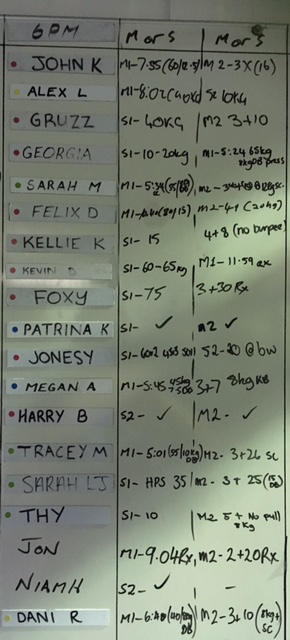 6PM Mars Mars
JOHN K M1-7:55 (60/12.5) M2-3X(16)
ALEX L M1-8:02 S2 10kg
GRUZZ S1-40KG M2 3+10
GEORGIA S1-10-20kg M1-5:24 65kg
SARAH M M1-5:34 (55/ M2-
FELIX D M2-4+1 (20kg)
KELLIE K S1-15 4+8 (no burpee)
KEVIN S1-60-65kg M1-11.59
FOXY S1-75 3+30 Rx
PATRINA K S1- ✓ M2 ✓
JONESY S1- S2-20 @bw
MEGAN A M1-5:45 45kg 3+7 8kg KB
HARRY B S2- ✓ M2- ✓
TRACEY M M1-5:01 (55/10kg DB) M2-3+26 SC
SARAH LJ S1-HPS 35 M2-3+25 (15 DB)
THY S1-10 M2 5+ No pull 8kg
JON M1-9.04Rx, M2-2+20Rx
NIAMH S2- ✓ -
DANI R M1-6:48 M2-3+10 (8kg+ SC)